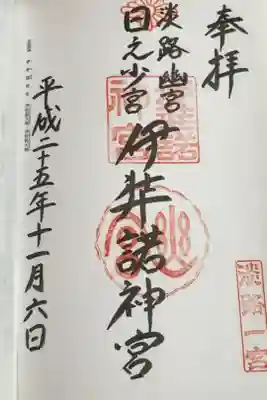 奉拝
淡路一宮
淡路幽宮
日之少宮
伊弉諾神宮
平成二十五年十一月六日